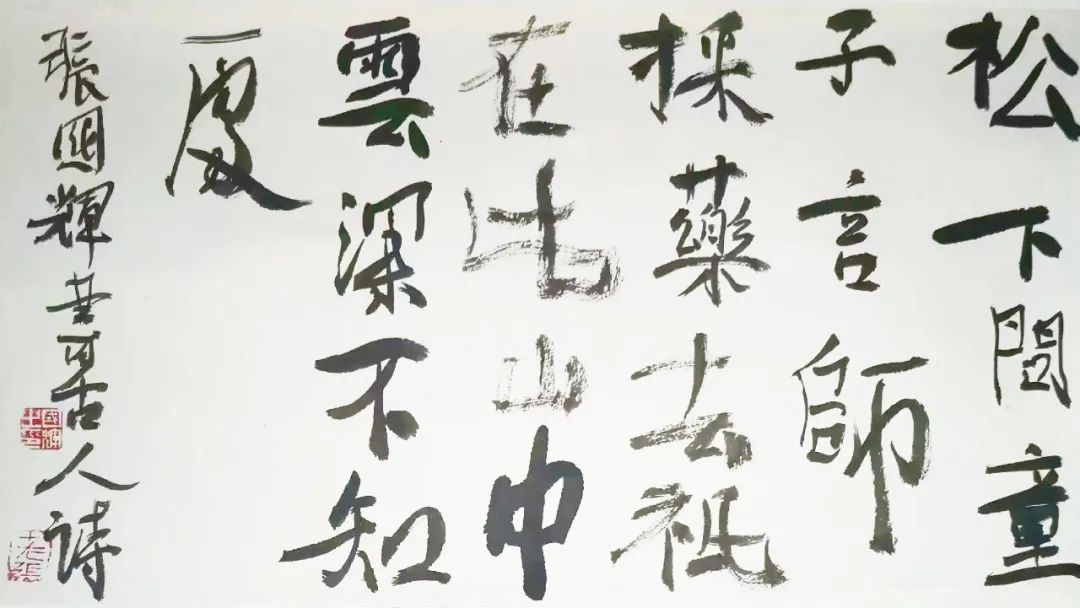 松下問童
子言師
採藥去祗
在此山中
雲深不知
處
張國輝 古人詩
老張